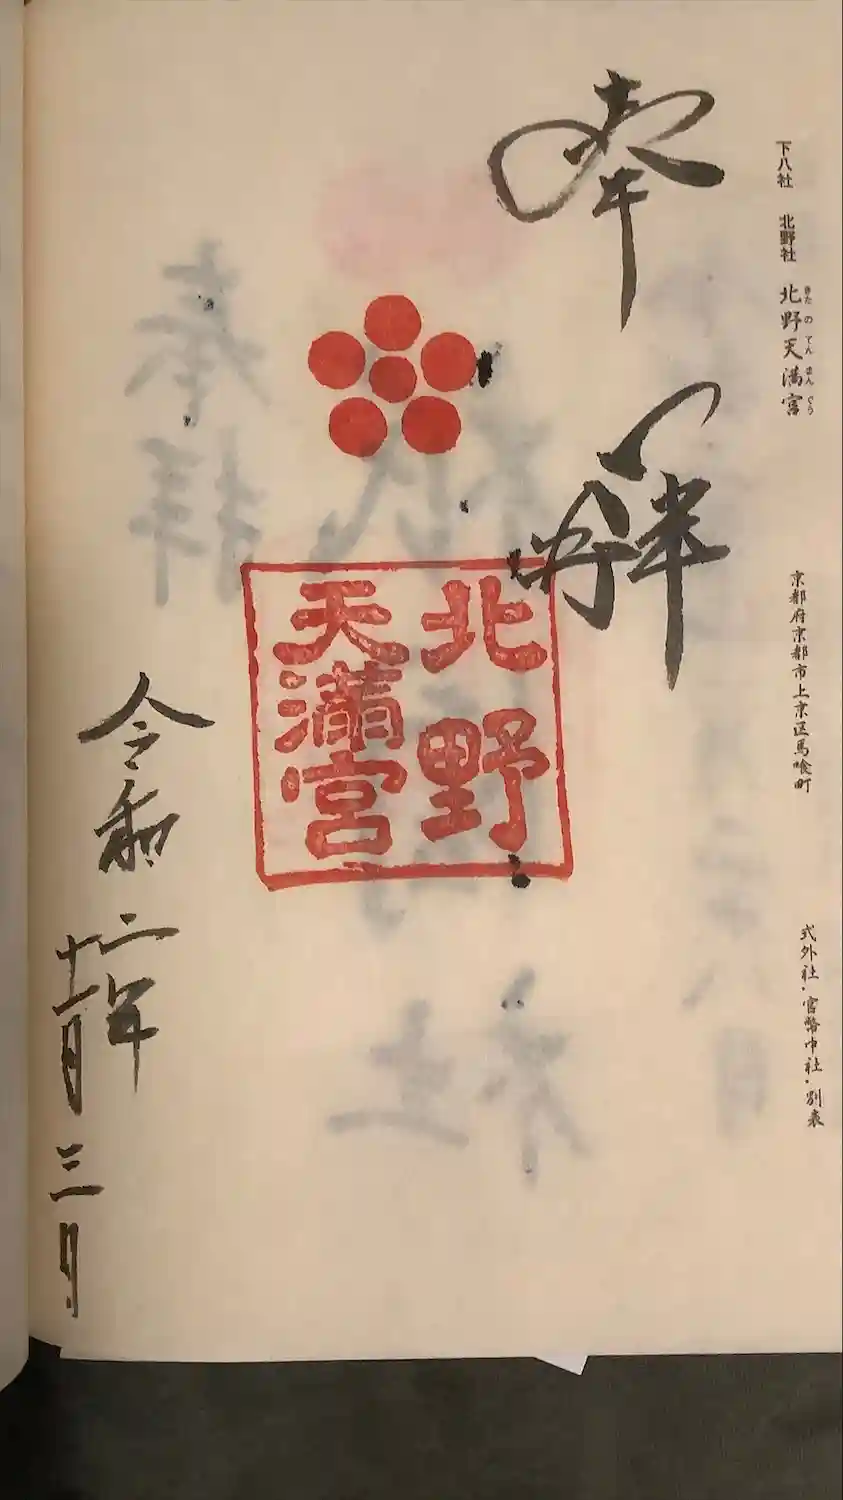 下八社 北野社 北野天満宮
きたのてんまんぐう
京都府京都市上京区馬喰町
式外社・官幣中社・別表
奉拝
北野
天滿宮
令和二年
十一月三日